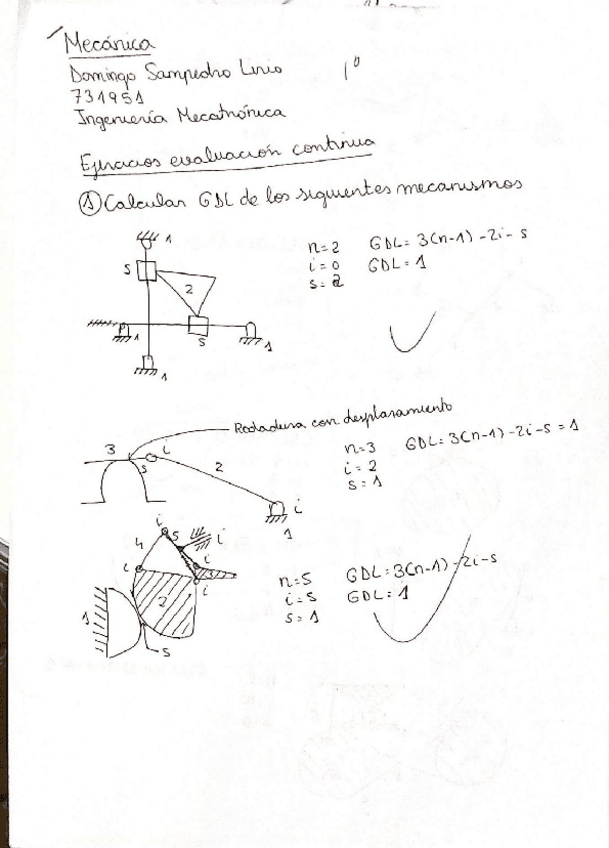 Mecánica
Domingo Sampedro Lirio 1º
731951
Ingeniería Mecatrónica
Ejercicios evaluación continua
① Calcular GDL de los siguientes mecanismos
1
S
2
1
S
1
1
n=2 GDL= 3(n-1) -2i- s
i=0 GDL= 1
s= 2
Rodadura con desplazamiento
3 i
s
2
i
1
n=3 GDL= 3(n-1)-2i-s = 1
i= 2
s= 1
i
4 5 i
i i
i
2
1
s
n=5 GDL= 3(n-1)-2i-s
i=5 GDL= 1
s= 1